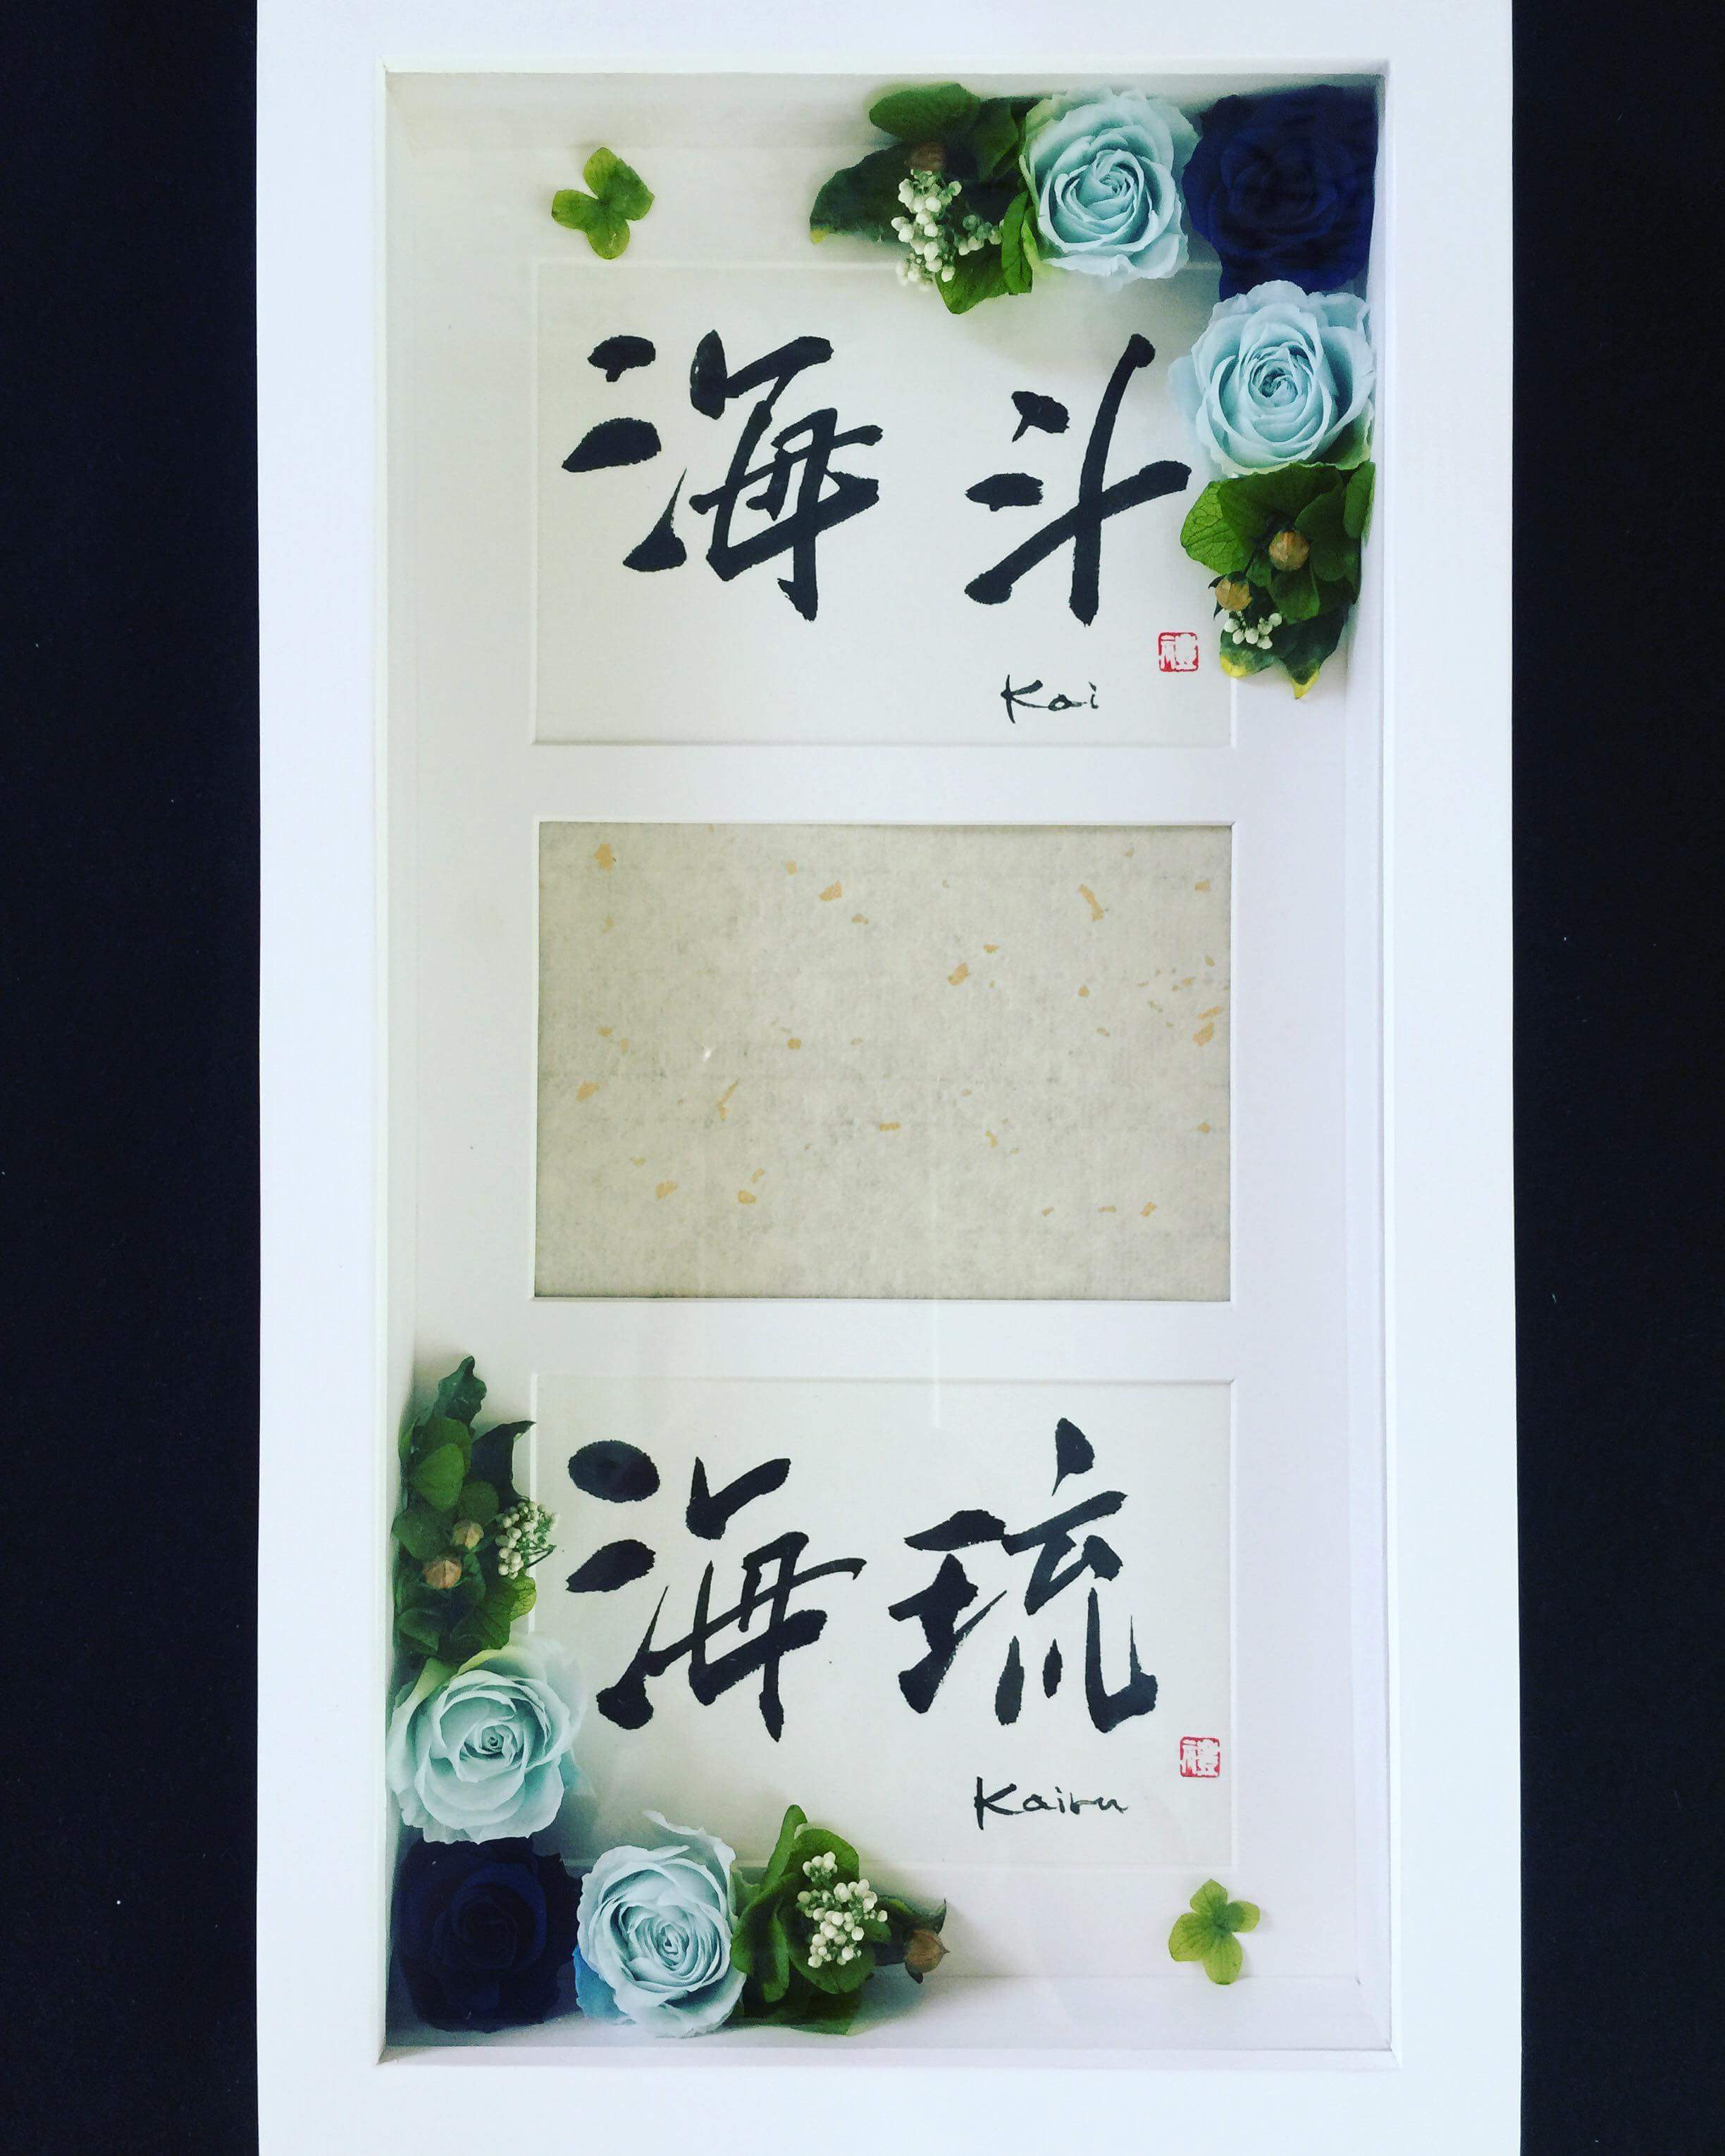 海斗
禮
Kai
海琉
禮
Kairu